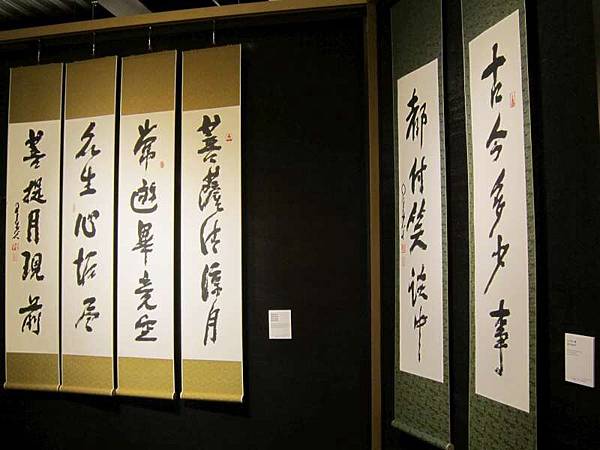 古今多少事
都付笑談中
菩薩清涼月
常遊畢竟空
众生心垢尽
菩提月現前